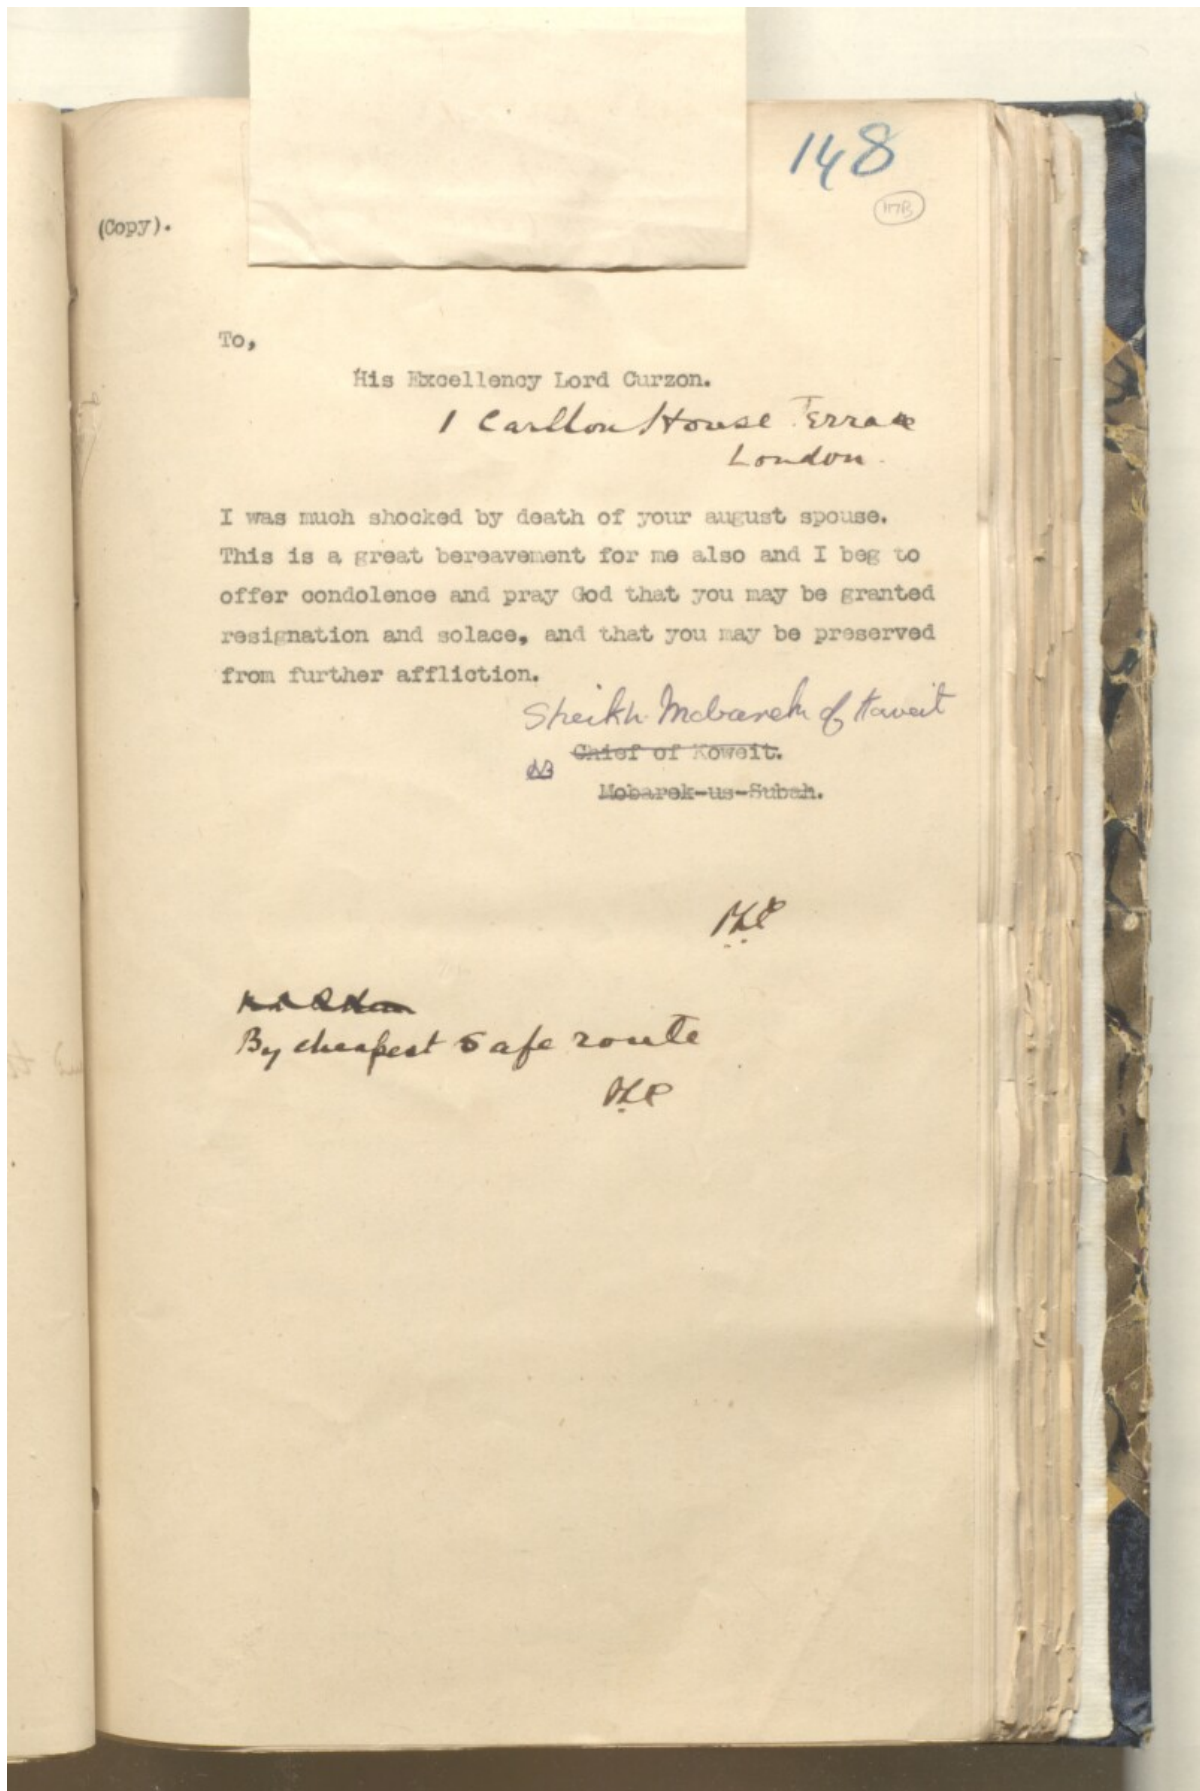 148
117B
(Copy).
To,
His Excellency Lord Curzon.
1 Carlton House Terrace
London.
I was much shocked by death of your august spouse.
This is a great bereavement for me also and I beg to
offer condolence and pray God that you may be granted
resignation and solace, and that you may be preserved
from further affliction.
Sheikh Mobarek of Koweit
Chief of Koweit.
Mobarek-us-Subah.
By cheapest safe route